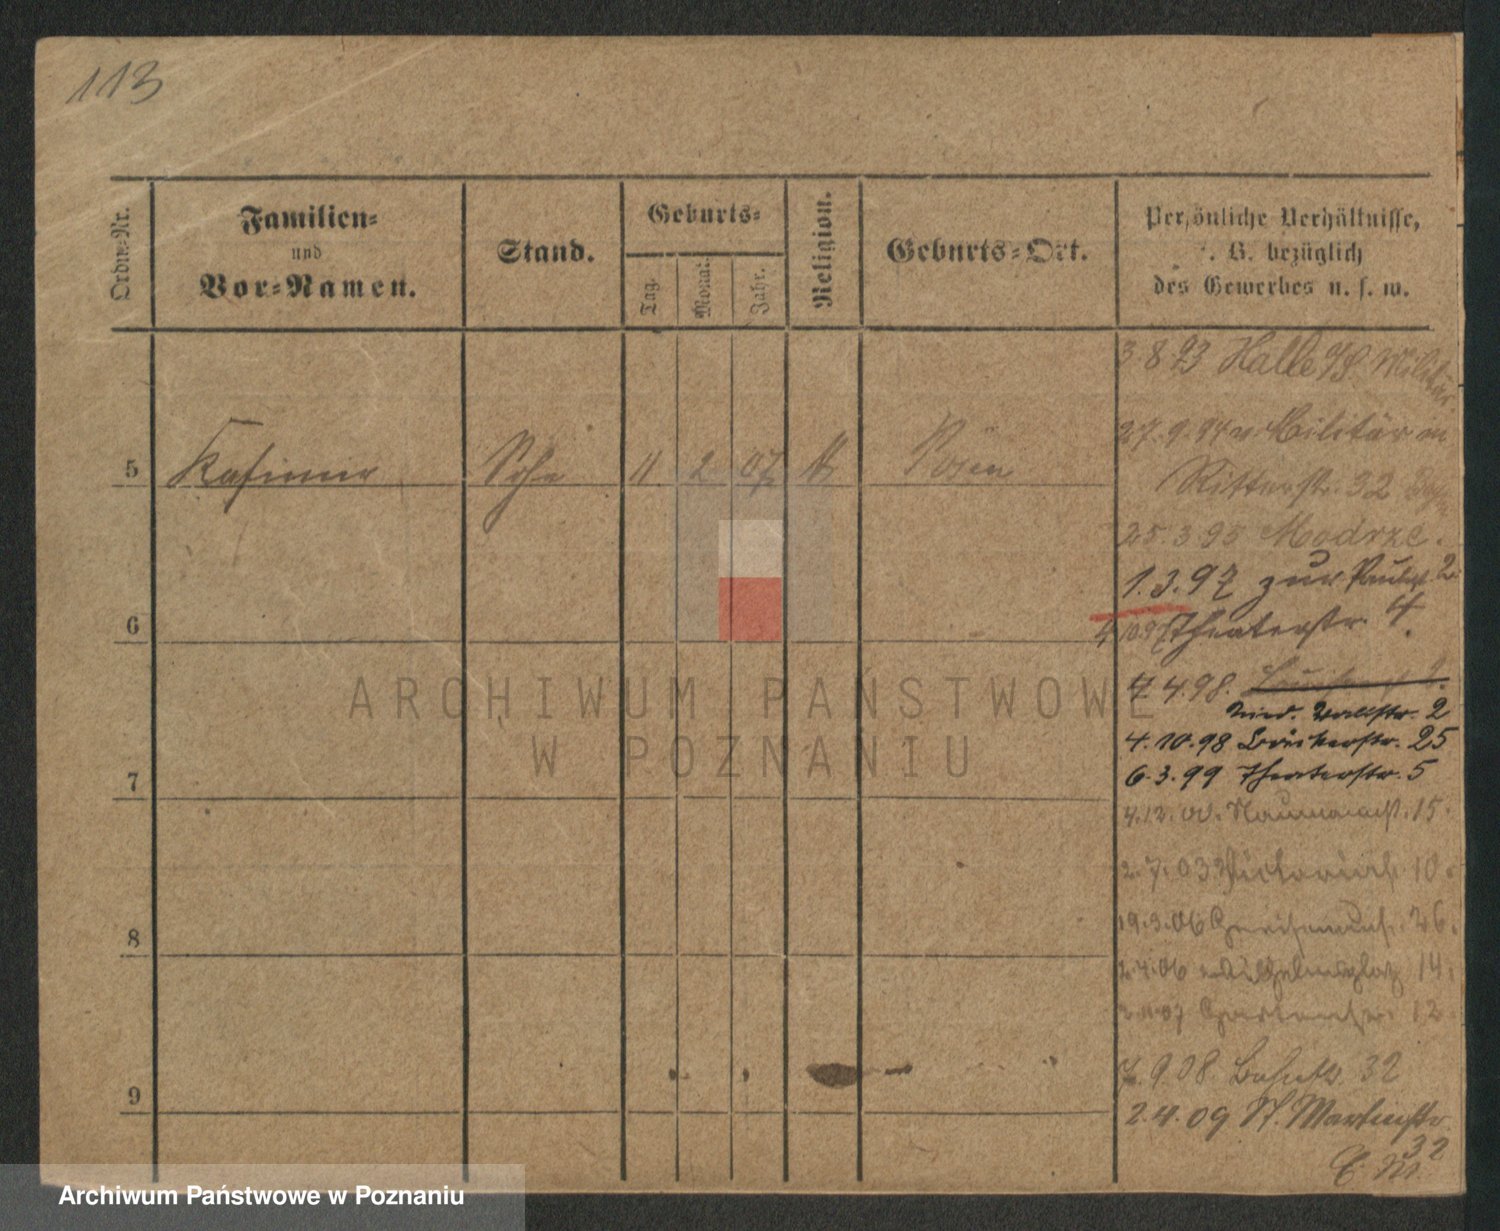 113
Ordn.-Nr.
Familien-
und
Vor-Namen.
Stand.
Geburts-
Tag.
Monat.
Jahr.
Religion.
Geburts-Ort.
Persönliche Verhältnisse,
z. B. bezüglich
des Gewerbes u. s. w.
3 8 93 Halle a/S. Militär
27. 9. 94 v. Militär in
Ritterstr. 32
5 Kasimir Sohn 11 2 07 Posen
25. 3 95 Modrze.
1. 3. 97 zur Paulist. 2
6
4 10 97 Theaterstr. 4
4. 4. 98.
Wallstr. 2
4. 10. 98 Bäckerstr. 25
6. 3. 99 Theaterstr. 5
7
4. 12. 00. Naumannstr. 15.
2. 7. 03 Victoriastr. 10.
19. 3. 06 26.
8
2. 4. 06 Wilhelmsplatz 14.
07 Gartenstr. 12
9. 08. 32
9
2. 4. 09 St. Martinstr.
32
ARCHIWUM PAŃSTWOWE
W POZNANIU
Archiwum Państwowe w Poznaniu